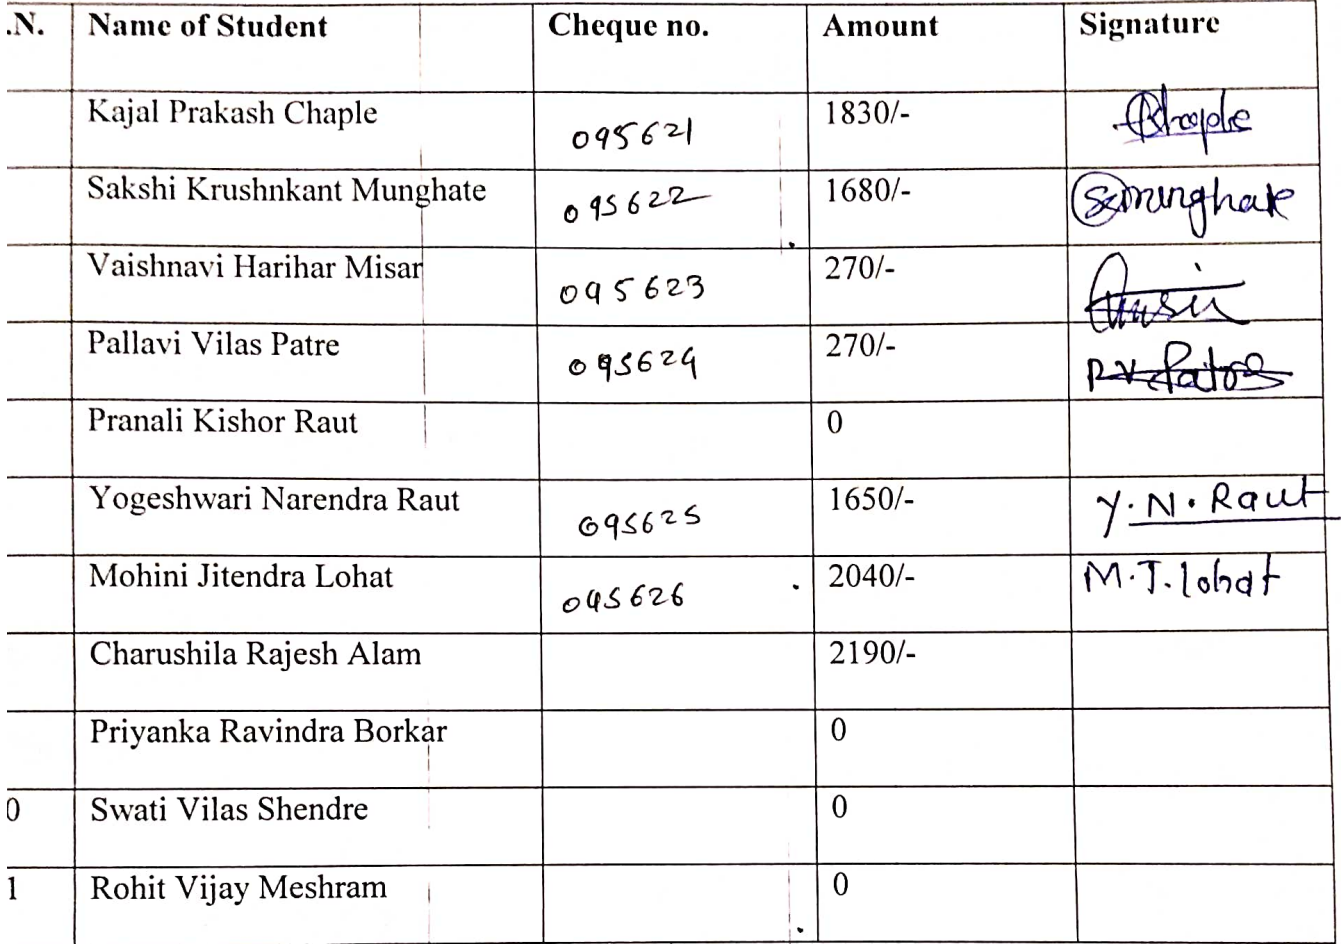 .N. Name of Student Cheque no. Amount Signature
Kajal Prakash Chaple 095621 1830/- Chaple
Sakshi Krushnkant Munghate 095622 1680/- Smunghate
Vaishnavi Harihar Misar 095623 270/-
Pallavi Vilas Patre 095624 270/- P.V.Patre
Pranali Kishor Raut 0
Yogeshwari Narendra Raut 095625 1650/- Y.N.Raut
Mohini Jitendra Lohat 095626 2040/- M.J.lohat
Charushila Rajesh Alam 2190/-
Priyanka Ravindra Borkar 0
0 Swati Vilas Shendre 0
1 Rohit Vijay Meshram 0